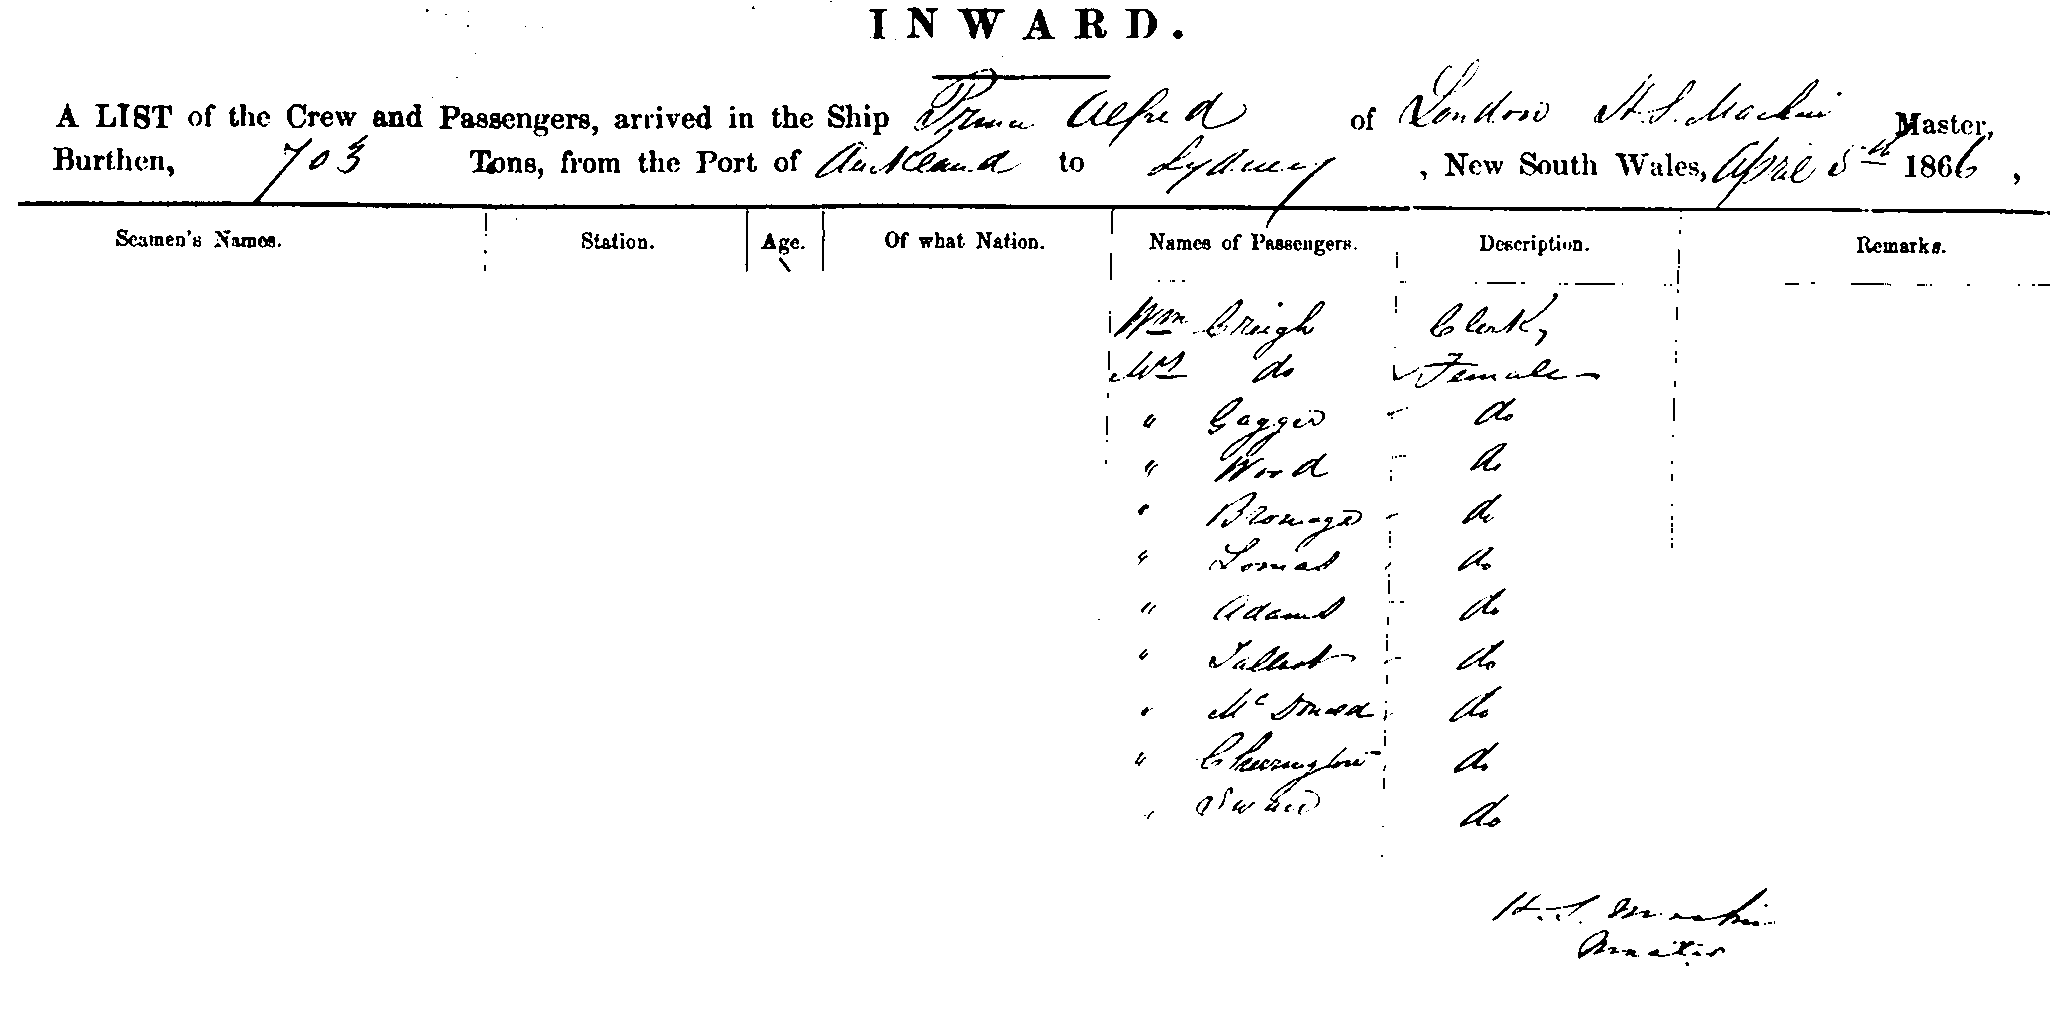 INWARD.
A LIST of the Crew and Passengers, arrived in the Ship Prince Alfred of London H. S. Machin Master,
Burthen, 703 Tons, from the Port of Auckland to Sydney, New South Wales, April 5th 1866,
Seamen's Names. Station. Age. Of what Nation. Names of Passengers. Description. Remarks.
Wm Creigh Clerk,
Mrs do Female
" Gagger do
" Wood do
" Bromage do
" Lomas do
" Adams do
" Talbot do
" McDonald do
" Cherrington do
" do
H. S. Machin
Master